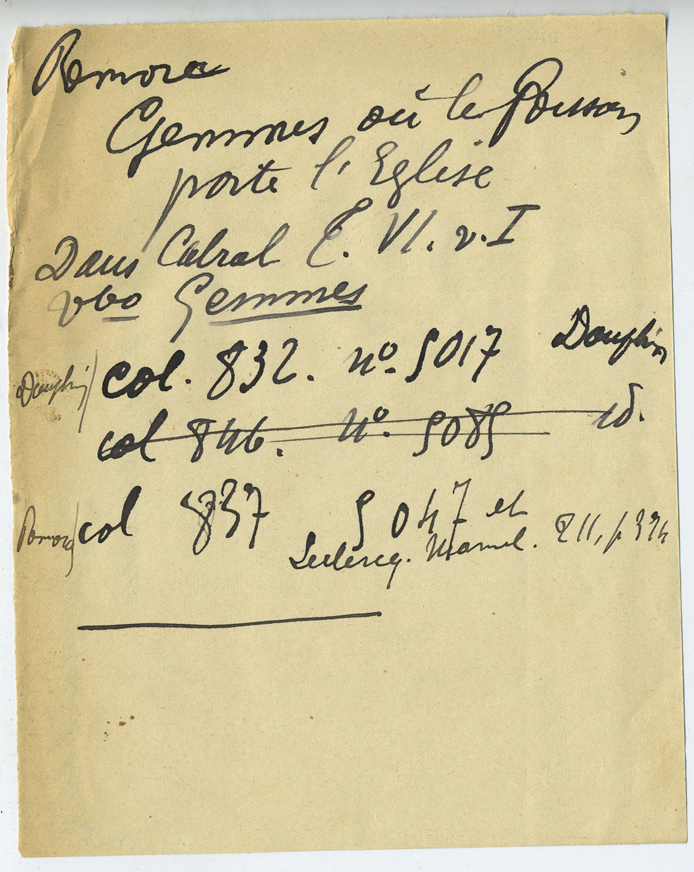 Remora
Gemmes où le Poisson
porte l'Eglise
Dans Cabrol T. VI. v. I
vbo Gemmes
Dauphin col. 832. nº 5017 Dauphin
col 846. nº. 5085 id.
Remora col 837 5047 et
Leclercq. Manuel. T II, p. 374